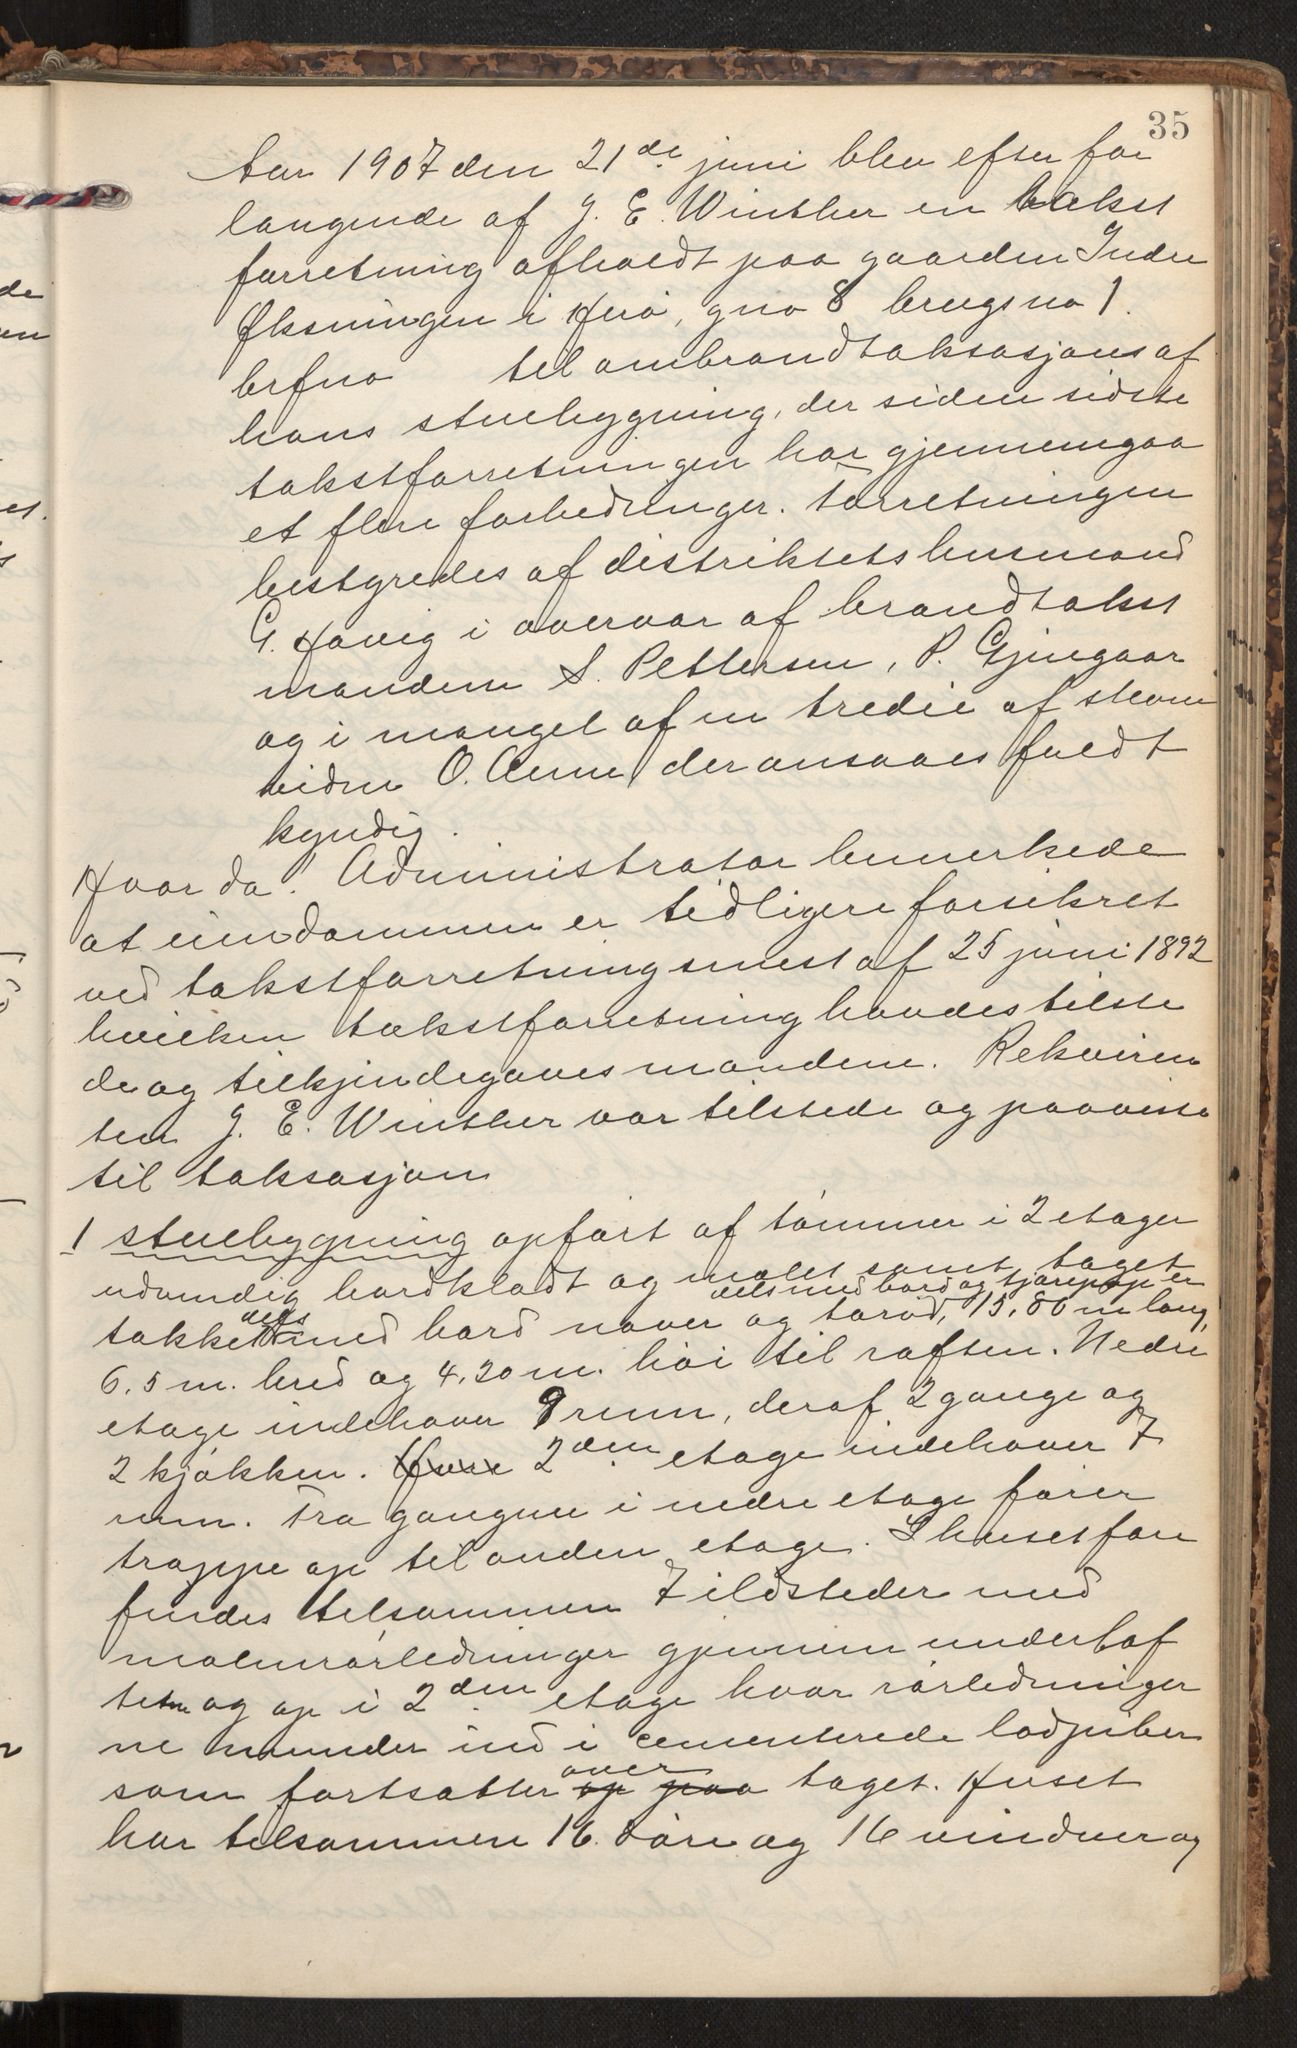 35
Aar 1907 den 21de juni blev efter for
langende af J. E. Winther en takst
forretning afholdt paa gaarden Indre
Øksningen i Herø, gno 8 brugsno 1.
brfno til ombrandtaksasjons af
hans stuebygning, der siden sidste
takstforretningen har gjennemgaa
et flere forbedringer. Forretningen
bestyredes af distriktets lensmand
G. Havig i overvær af brandtakst
mændene S. Pettersen, P. Gjengaar
og i mangel af en tredie af stevne
vidne O. Aune, der ansaaes fuldt
kyndig.
Hvor da! Administrator bemerkede
at eiendommen er tidligere forsikret
ved takstforretningsmest af 25 juni 1892
hvilken takstforretning havdes tilste
de og tilkjendegaves mændene. Rekviren
ten J. E. Winther var tilstede og paaviste
til taksasjon
1 stuebygning opført af tømmer i 2 etager
udvendig bordklædt og malet samt taget
dels med bord og tjærepap er
tækket dels med bord næver og torvd, 15,80 m lang,
6,5 m. bred og 4,20 m. høi til raften. Nedre
etage indehaver 9 rum, deraf 2 gange og
2 kjøkken. 2den etage indehaver 7
rum. Fra gangene i nedre etage fører
trappe op til anden etage. I huset fore
findes tilsammen 7 ildsteder med
malmrørledninger gjennem underlof
tetne og op i 2den etage hvor rørledninger
ne munder ind i cementerede lodpiber
som fortsætter op paa over taget. Huset
har tilsammen 16 døre og 16 vinduer og